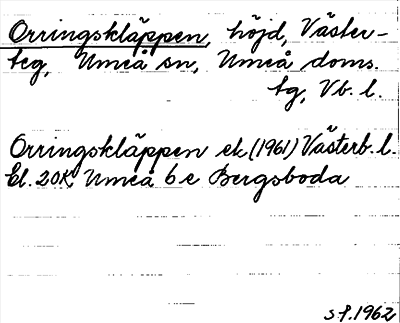 Orringskläppen, höjd, Väster-
teg, Umeå sn, Umeå doms.
tg, Vb. l.
Orringskläppen ek. (1961) Västerb. l.
Bl. 20K Umeå 6 e Bergsboda
s f. 1962